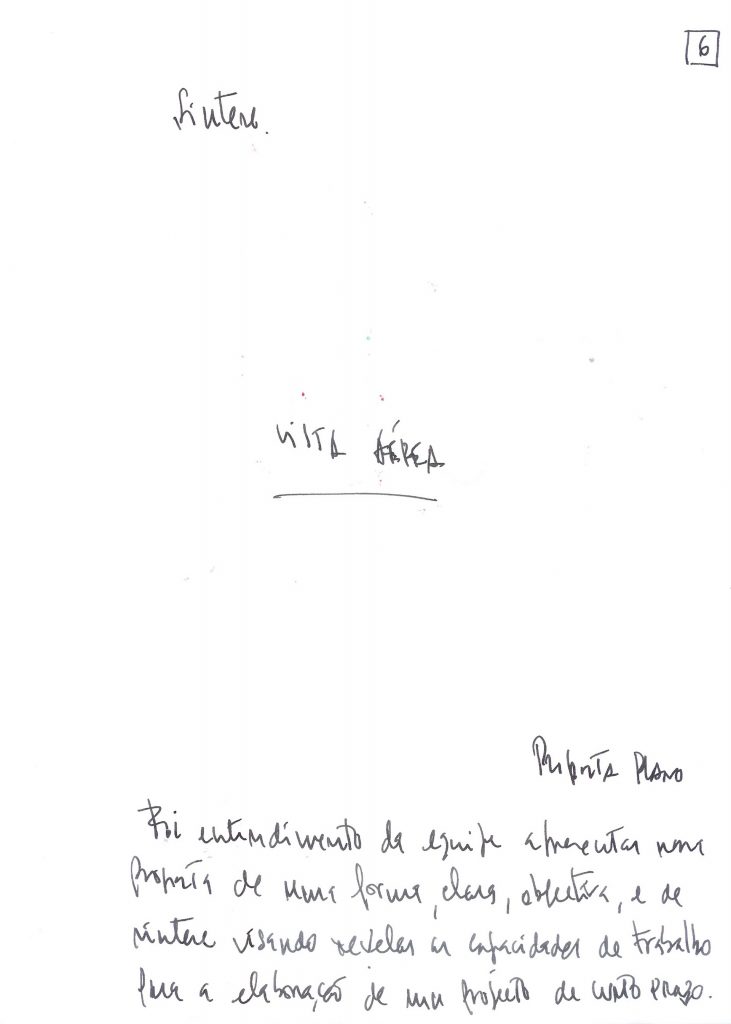 6
Síntese.
VISTA AÉREA
Proposta PLANO
Foi entendimento da equipe apresentar uma
proposta de uma forma, clara, objectiva, e de
síntese visando revelar as capacidades de trabalho
para a elaboração de um projecto de curto prazo.